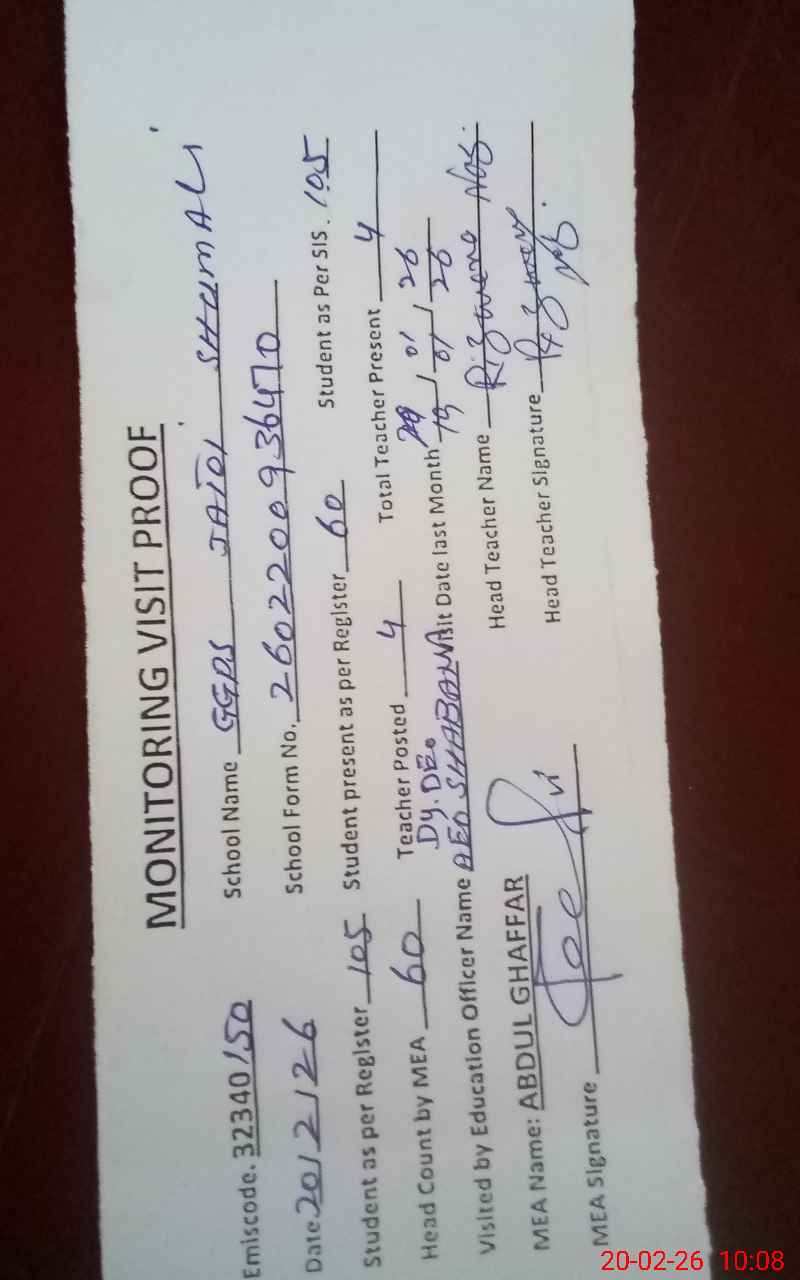 MONITORING VISIT PROOF
Emiscode. 32340150 School Name GGPS JAIOI SHUMALI
Date 20/2/26 School Form No. 2602200936470
Student as per Register 105 Student present as per Register 60 Student as Per SIS. 105
Head Count by MEA 60 Teacher Posted 4 Total Teacher Present 4
Dy. DEO 29 / 01 / 26
Visited by Education Officer Name AEO SHABANA Visit Date last Month 19 / 01 / 26
MEA Name: ABDUL GHAFFAR Head Teacher Name
MEA Signature Head Teacher Signature
20-02-26 10:08